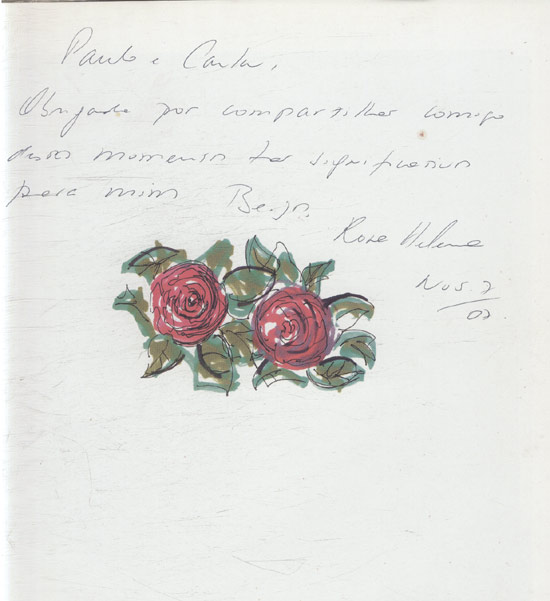 Paulo e Carla,
Obrigada por compartilhar comigo
desses momentos tão significativos
para mim Beijos,
Rosa Helena
07